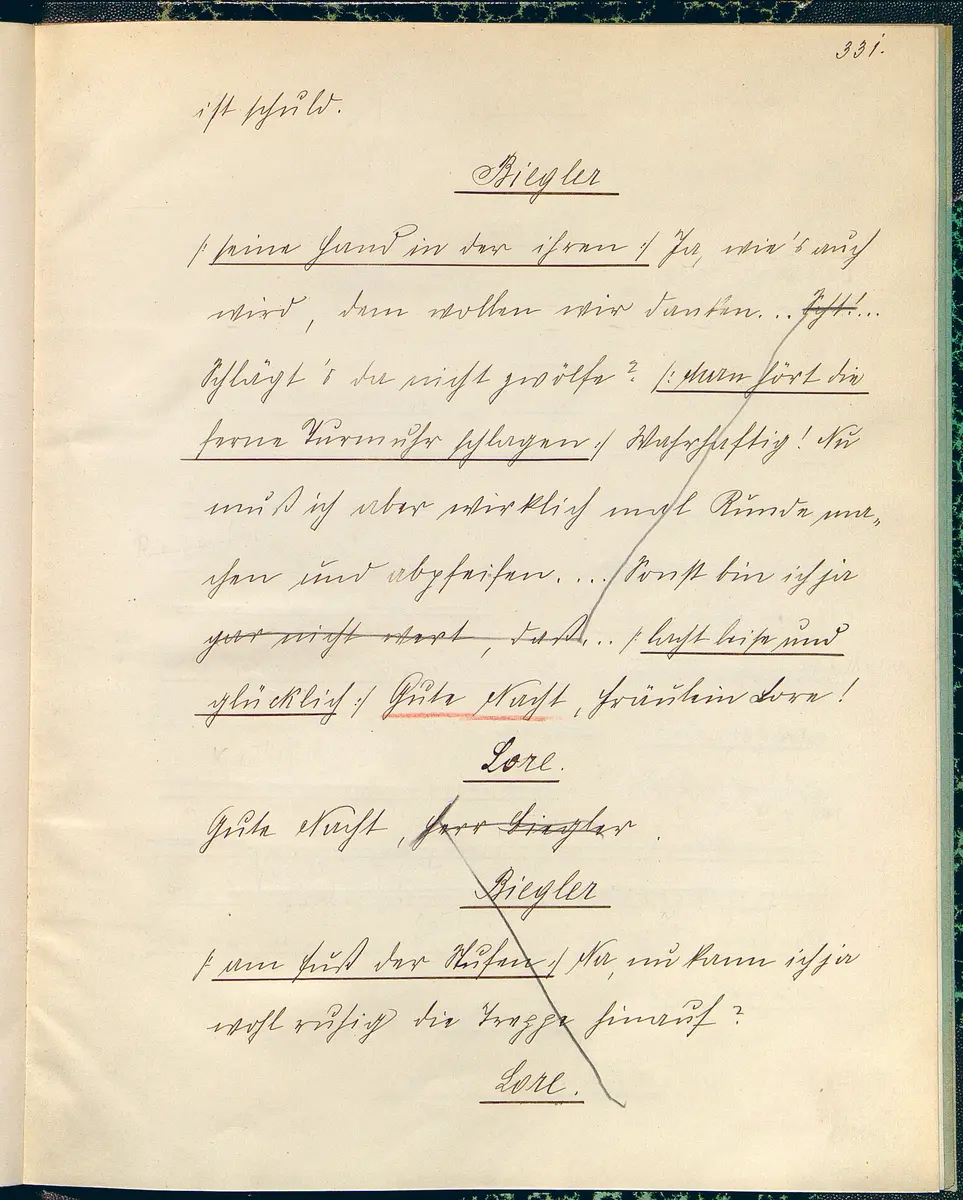 331.
ist schuld.
Biegler
/: seine Hand in der ihren :/ Ja, wie's auch
wird, dem wollen wir danken... Scht!...
Schlägt's da nicht zwölfe? /: Man hört die
ferne Turmuhr schlagen :/ Wahrhaftig! Nu
muß ich aber wirklich mal Runde ma-
chen und abpfeifen.... Sonst bin ich ja
gar nicht wert, daß... /: lacht leise und
glücklich :/ Gute Nacht, Fräulein Lore!
Lore.
Gute Nacht, Herr Biegler.
Biegler
/: am Fuß der Stufen :/ Na, nu kann ich ja
wohl ruhig die Treppe hinauf?
Lore.